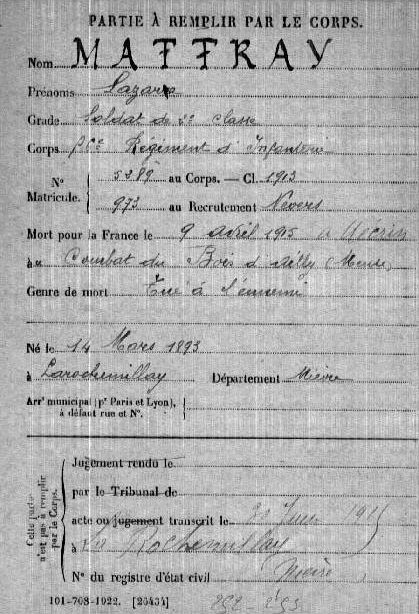 PARTIE À REMPLIR PAR LE CORPS.
Nom MATTRAY
Prénoms Lazare
Grade Soldat de 2e classe
Corps Régiment d'Infanterie
N° Matricule. 5289 au Corps. — Cl. 1913
973 au Recrutement Nevers
Mort pour la France le 9 avril 1915
au Combat du Bois d'Ailly (Meuse)
Genre de mort Tué à l'ennemi
Né le 14 Mars 1893
à Larochemillay Département Nièvre
Arrt municipal (pr Paris et Lyon),
à défaut rue et N°.
Cette partie
n'est pas à remplir
par le Corps.
Jugement rendu le
par le Tribunal de
acte ou jugement transcrit le 1915
à La Rochemillay
N° du registre d'état civil Nièvre
101-708-1922. [26434]